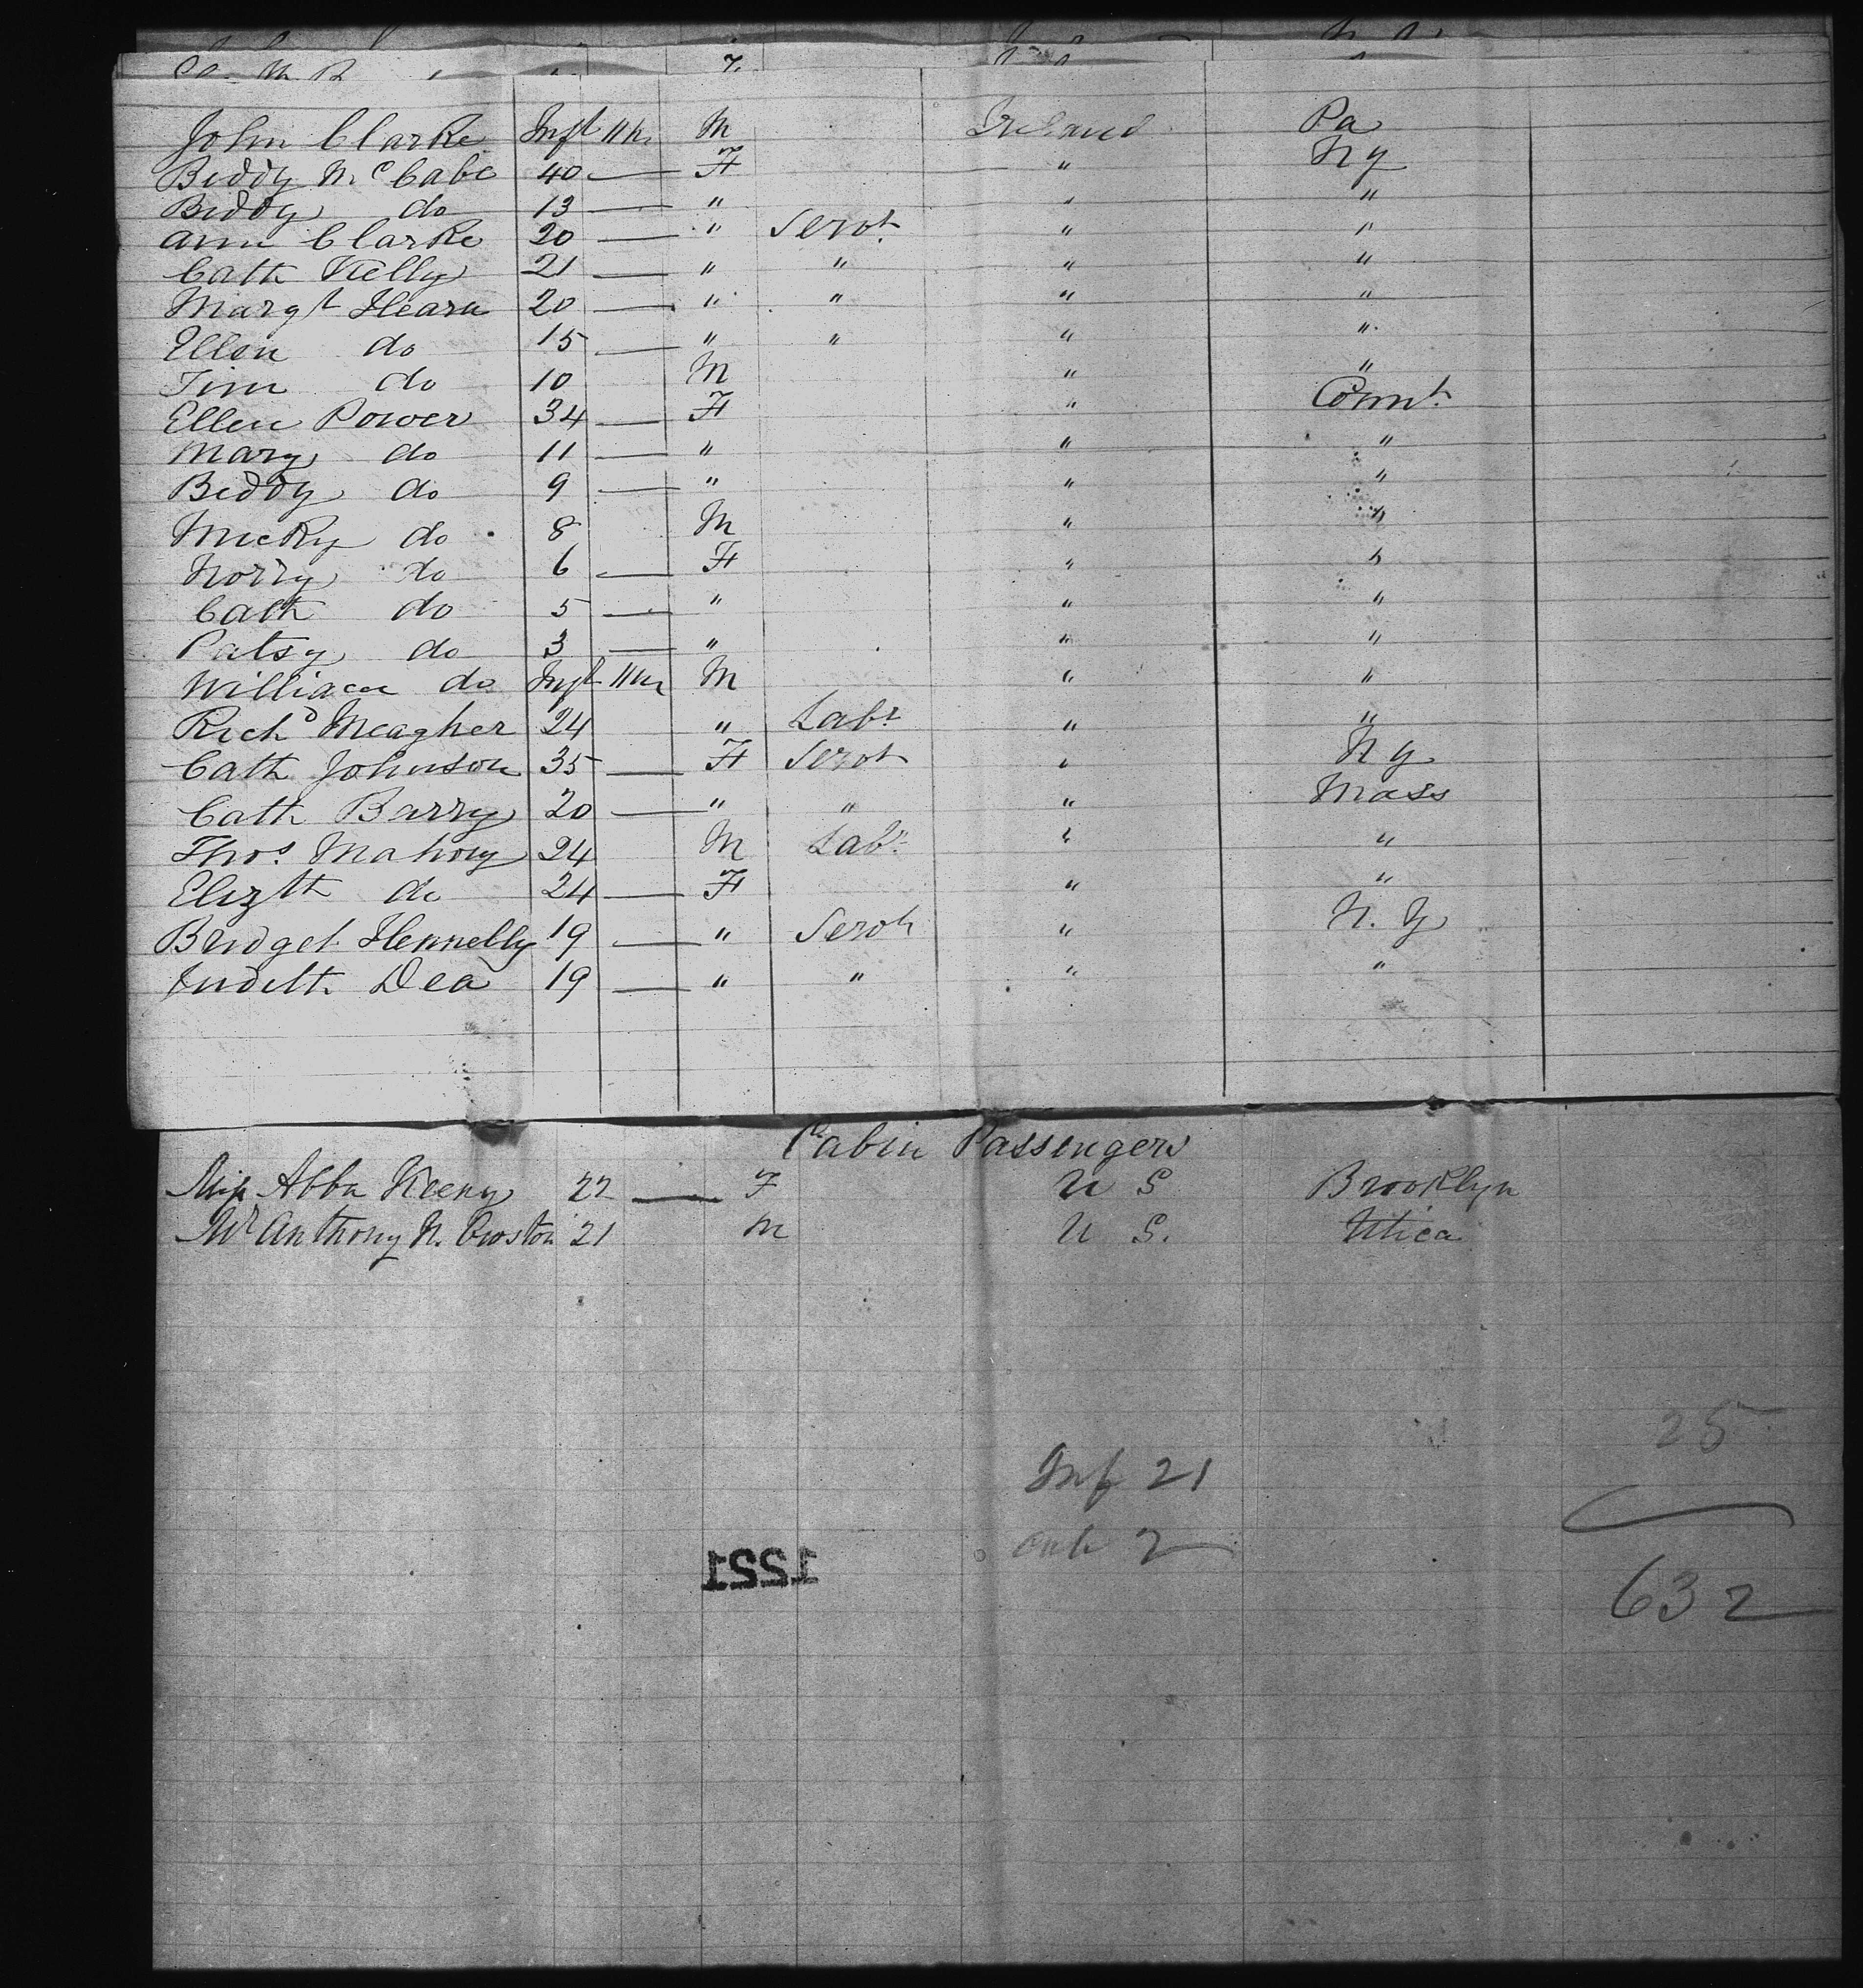 John Clarke Inft 11 M Ireland Pa
Biddy McCabe 40 — F " N Y
Biddy do 13 — " " "
Ann Clarke 20 — " Servt " "
Cath Kielly 21 — " " " "
Margt Hearn 20 — " " " "
Ellen do 15 — " " " "
Tim do 10 M " "
Ellen Power 34 — F " Connt
Mary do 11 — " " "
Biddy do 9 — " " "
Micky do 8 M " "
Norry do 6 — F " "
Cath do 5 — " " "
Patsy do 3 — " " "
William do Inft 11 M " "
Richd Meagher 24 " Labr " "
Cath Johnson 35 — F Servt " N Y
Cath Barry 20 — " " " Mass
Thos. Mahony 24 M Labr " "
Elizth do 24 — F " "
Bridget Hennelly 19 — " Servt " N. Y
Judith Dea 19 — " " " "
Cabin Passengers
Miss Abba Keeny 22 — F U S Brooklyn
Mr Anthony N. 21 M U S. Utica
25
Inf 21
2
1221
632